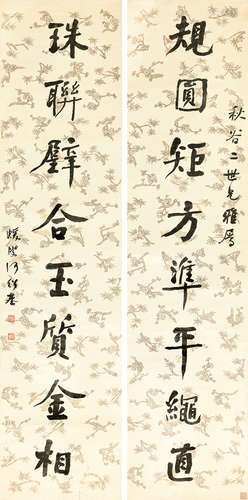 秋谷二世兄雅屬
規圓矩方準平繩直
珠聯璧合玉質金相
蝯叟何紹基